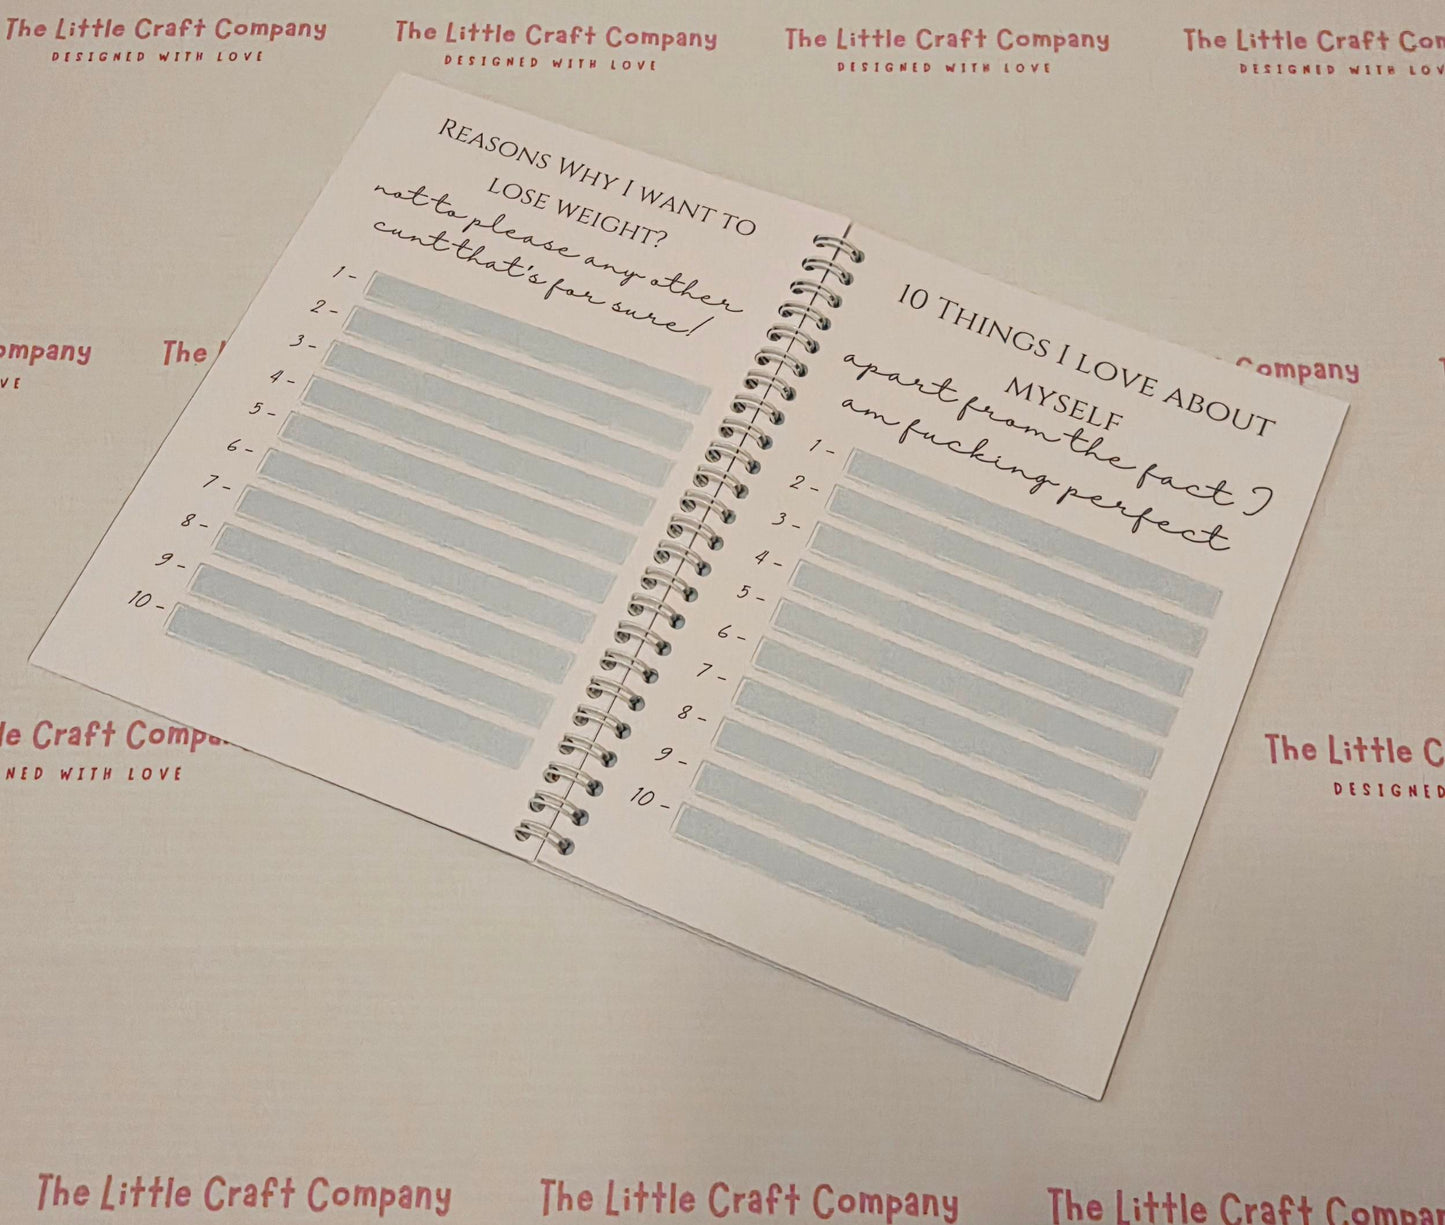 The Little Craft Company
DESIGNED WITH LOVE
The Little Craft Company
DESIGNED WITH LOVE
The Little Craft Company
DESIGNED WITH LOVE
The Little Craft Con
DESIGNED WITH LOV
REASONS WHY I WANT TO
LOSE WEIGHT?
not to please any other
cunt that's for sure!
1 -
2 -
3 -
4 -
5 -
6 -
7 -
8 -
9 -
10 -
10 THINGS I LOVE ABOUT
MYSELF
apart from the fact I
am fucking perfect
1 -
2 -
3 -
4 -
5 -
6 -
7 -
8 -
9 -
10 -
ompany
VE
The
Company
le Craft Compa
NED WITH LOVE
The Little C
DESIGNED
The Little Craft Company
The Little Craft Company
The Little Craft Compan